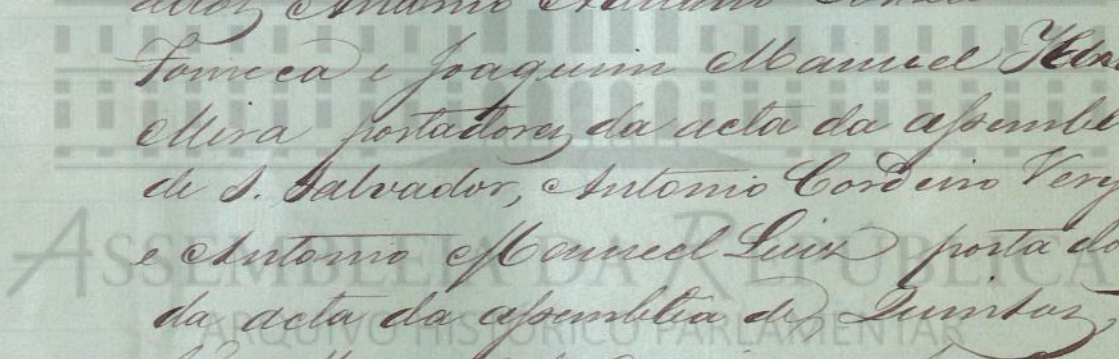 Antonio
Fonseca e Joaquim Manuel
Mira portadores da acta da assemble
de S. Salvador, Antonio Cordeiro Verg
e Antonio Manuel Luiz porta do
ASSEMBLEIA DA REPÚBLICA
da acta da assembleia de Quintos
ARQUIVO HISTÓRICO PARLAMENTAR